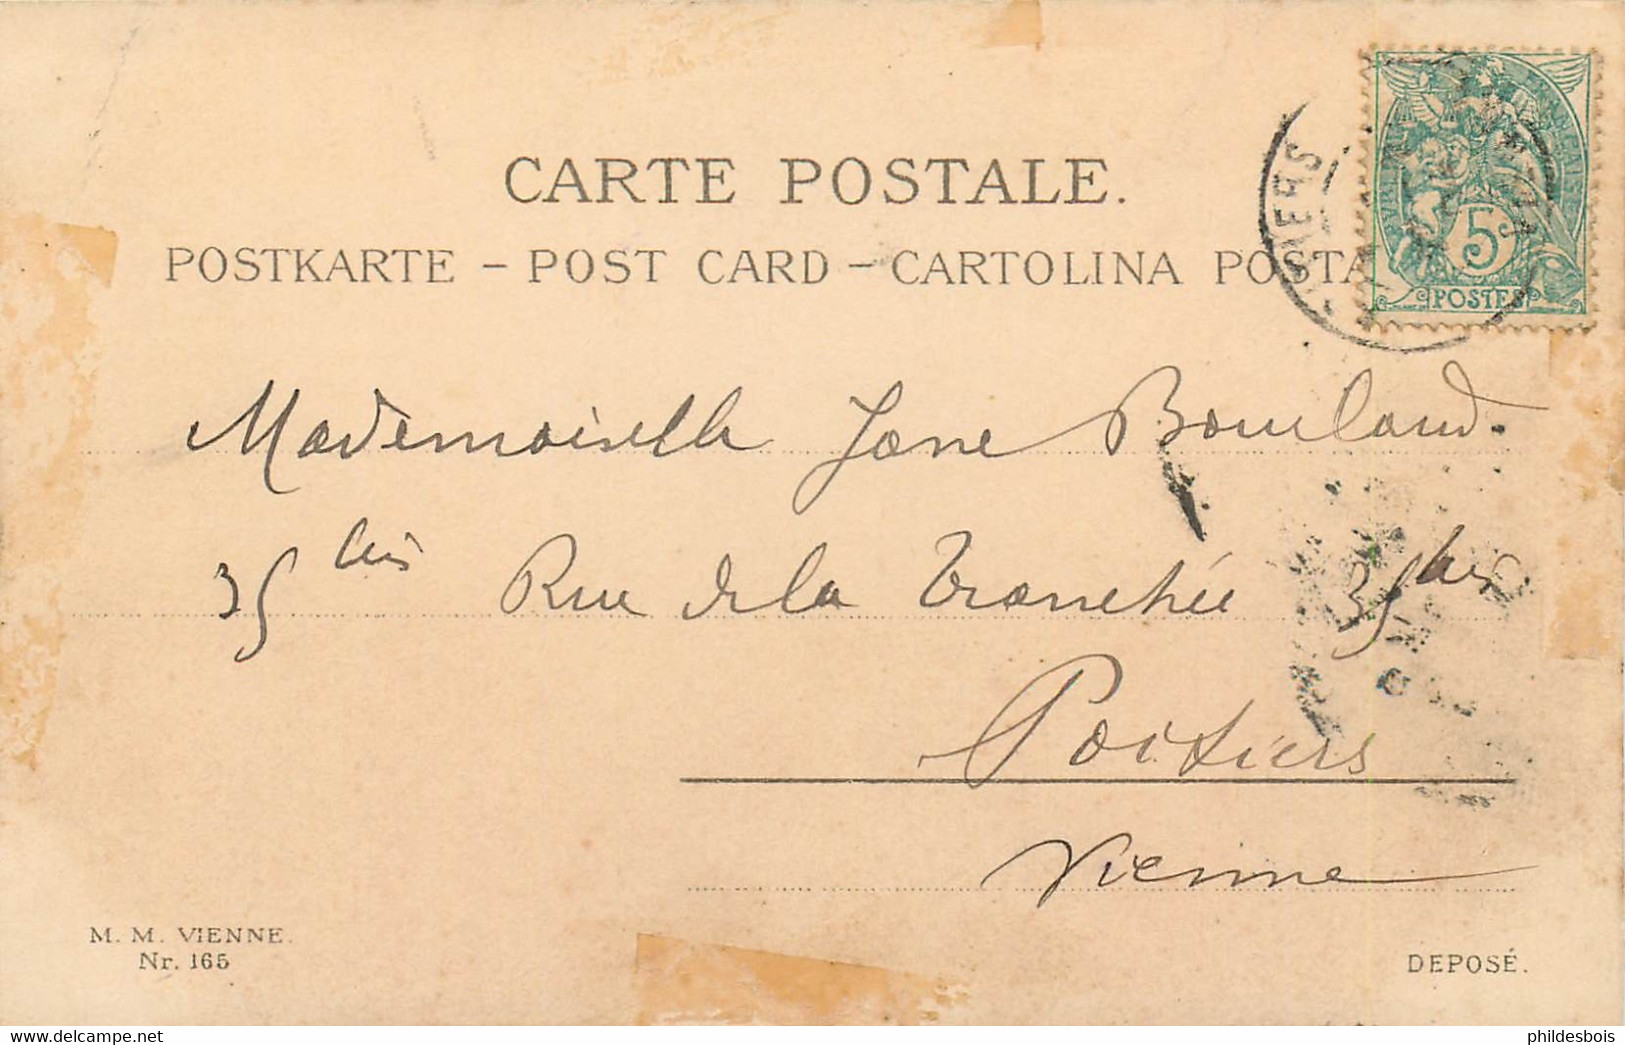 CARTE POSTALE.
POSTKARTE – POST CARD – CARTOLINA POSTA
5
POSTES
Mademoiselle Jane Bourland.
35 bis Rue de la Tranchée 35 bis
Poitiers
Vienne
M. M. VIENNE.
Nr. 165
DEPOSÉ.
www.delcampe.net
phildesbois